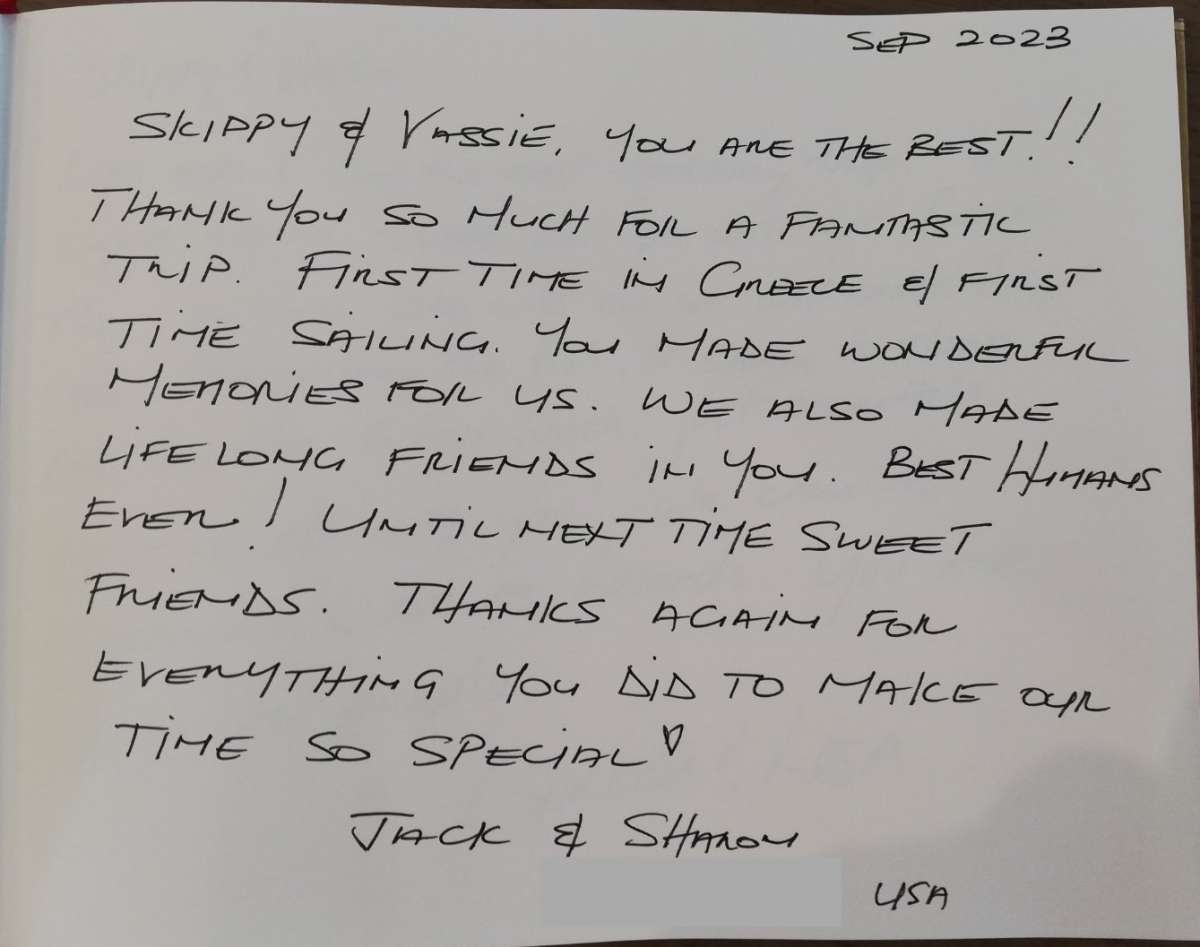 SEP 2023
SKIPPY & VASSIE, YOU ARE THE BEST!!
THANK YOU SO MUCH FOR A FANTASTIC
TRIP. FIRST TIME IN GREECE & FIRST
TIME SAILING. YOU MADE WONDERFUL
MEMORIES FOR US. WE ALSO MADE
LIFELONG FRIENDS IN YOU. BEST HUMANS
EVER! UNTIL NEXT TIME SWEET
FRIENDS. THANKS AGAIN FOR
EVERYTHING YOU DID TO MAKE OUR
TIME SO SPECIAL ♡
JACK & SHARON
USA